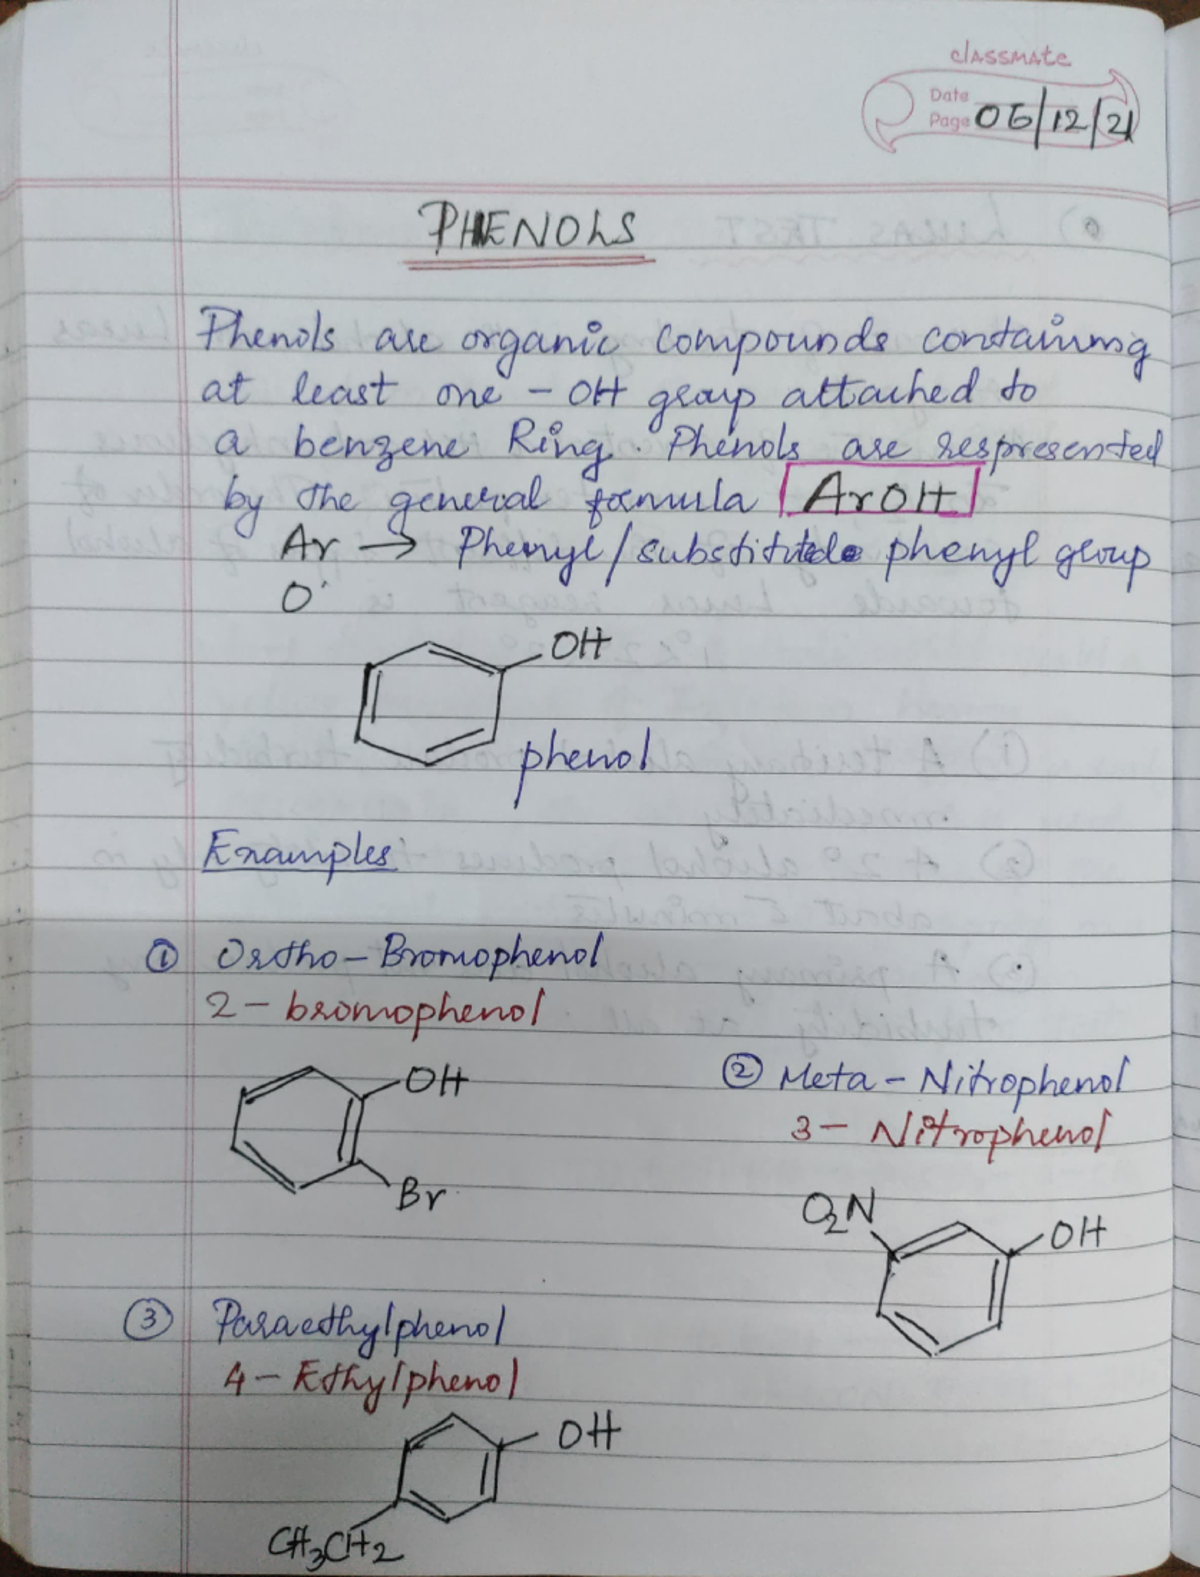 classmate
Date
Page 06/12/21
PHENOLS
Phenols are organic compounds containing
at least one - OH group attached to
a benzene Ring. Phenols are respresented
by the general formula ArOH
Ar → Phenyl/substituted phenyl group
O
OH
phenol
Examples
① Ortho - Bromophenol
2 - bromophenol
OH
Br
② Meta - Nitrophenol
3 - Nitrophenol
O₂N
OH
③ Paraethylphenol
4 - Ethylphenol
OH
CH₃CH₂